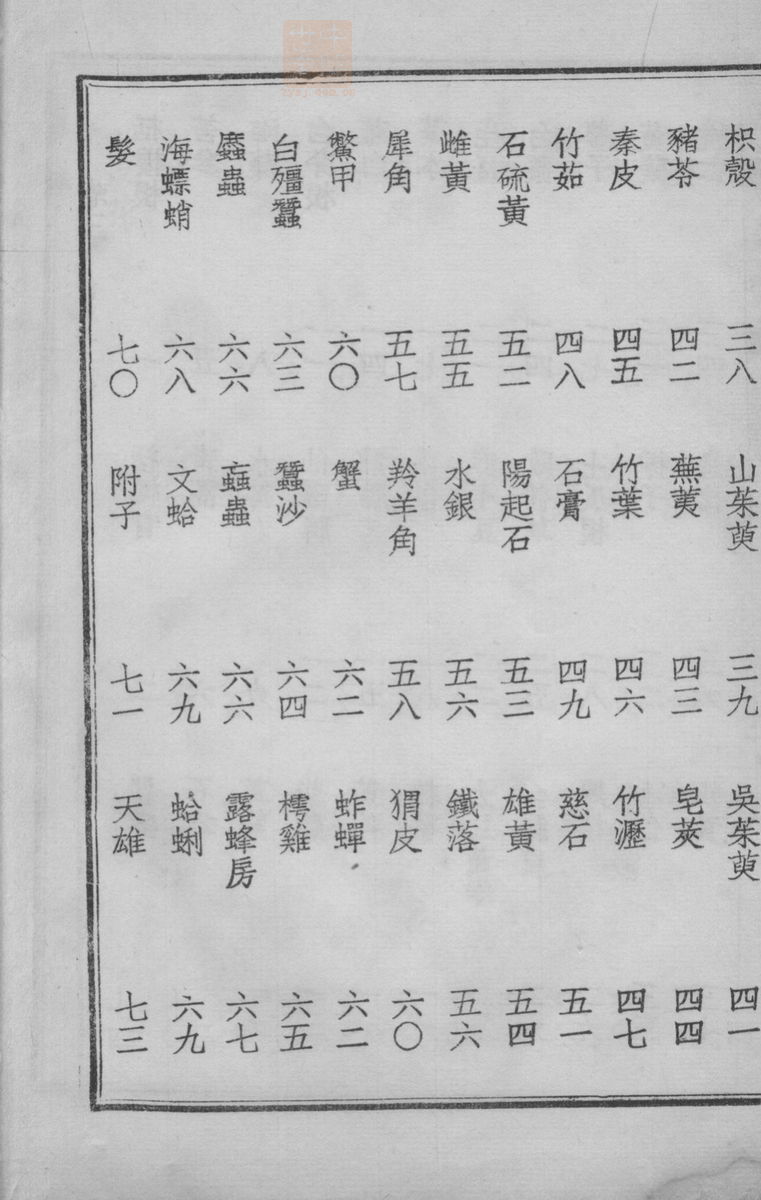 枳殼 三八 山茱萸 三九 吳茱萸 四一
豬苓 四二 蕪荑 四三 皂莢 四四
秦皮 四五 竹葉 四六 竹瀝 四七
竹茹 四八 石膏 四九 慈石 五一
石硫黃 五二 陽起石 五三 雄黃 五四
雌黃 五五 水銀 五六 鐵落 五六
犀角 五七 羚羊角 五八 猬皮 六〇
鱉甲 六〇 蟹 六二 蚱蟬 六二
白殭蠶 六三 蠶沙 六四 樗雞 六五
䗪蟲 六六 蝱蟲 六六 露蜂房 六七
海螵蛸 六八 文蛤 六九 蛤蜊 六九
髮 七〇 附子 七一 天雄 七三